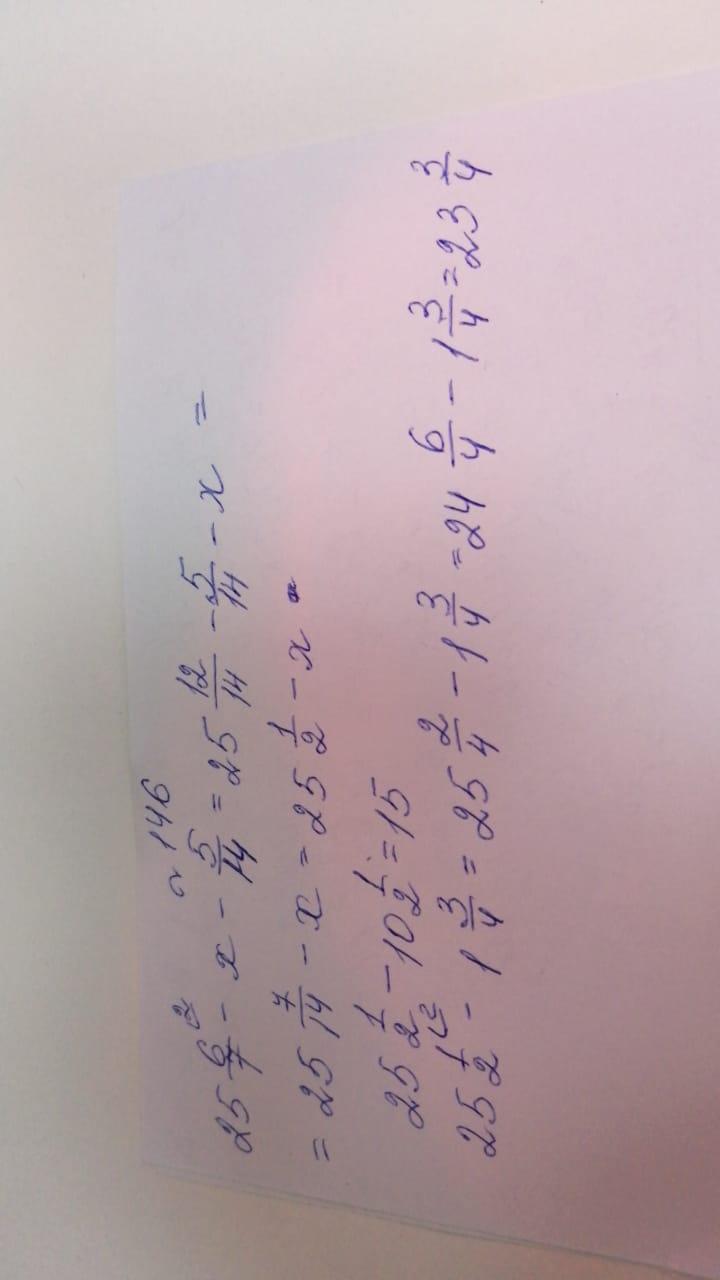 ~ 146
25 6/7 ² - x - 5/14 = 25 12/14 - 5/14 - x =
= 25 7/14 - x = 25 1/2 - x
25 1/2 - 10 1/2 = 15
25 1/2 ² - 1 3/4 = 25 2/4 - 1 3/4 = 24 6/4 - 1 3/4 = 23 3/4